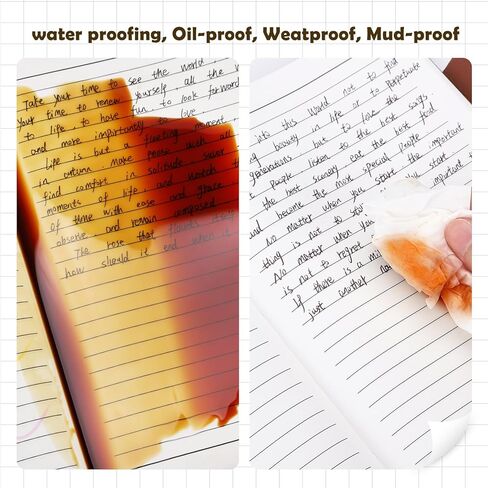 water proofing, Oil-proof, Weatproof, Mud-proof
Take your time to see the world
your time, to renew yourself, all the
to life, to have fun to look forward
and more importantly to love
life is but a fleeting moment
in autumn. Make peace with all
find comfort in solitude. savor
moments of life, and watch the
of time with ease and grace
observe and remain composed
The rose that flounts itself
how should it end when it
into this world not to
beauty in life or to perpetuate
generations but to love the
people listen to the best songs
the best scenery eat the best food
and become the most special people
No matter when you start the important
thing is not to
No matter when you start
is not to regret
If there is a
just another